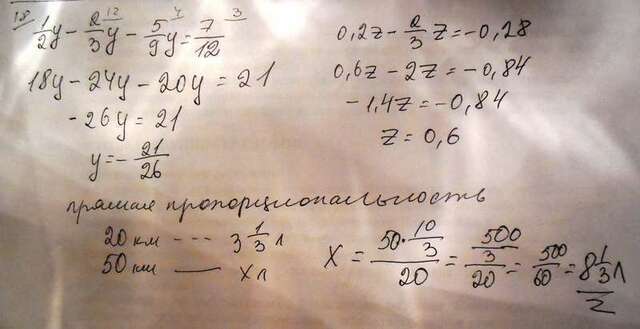 18 12 4 3
1/2 y - 2/3 y - 5/9 y = 7/12
18y - 24y - 20y = 21
-26y = 21
y = - 21/26
0,2z - 2/3 z = -0,28
0,6z - 2z = -0,84
-1,4z = -0,84
z = 0,6
прямая пропорциональность
20 км --- 3 1/3 л
50 км — x л
x = (50 · 10/3)/20 = (500/3)/20 = 500/60 = 8 1/3 л